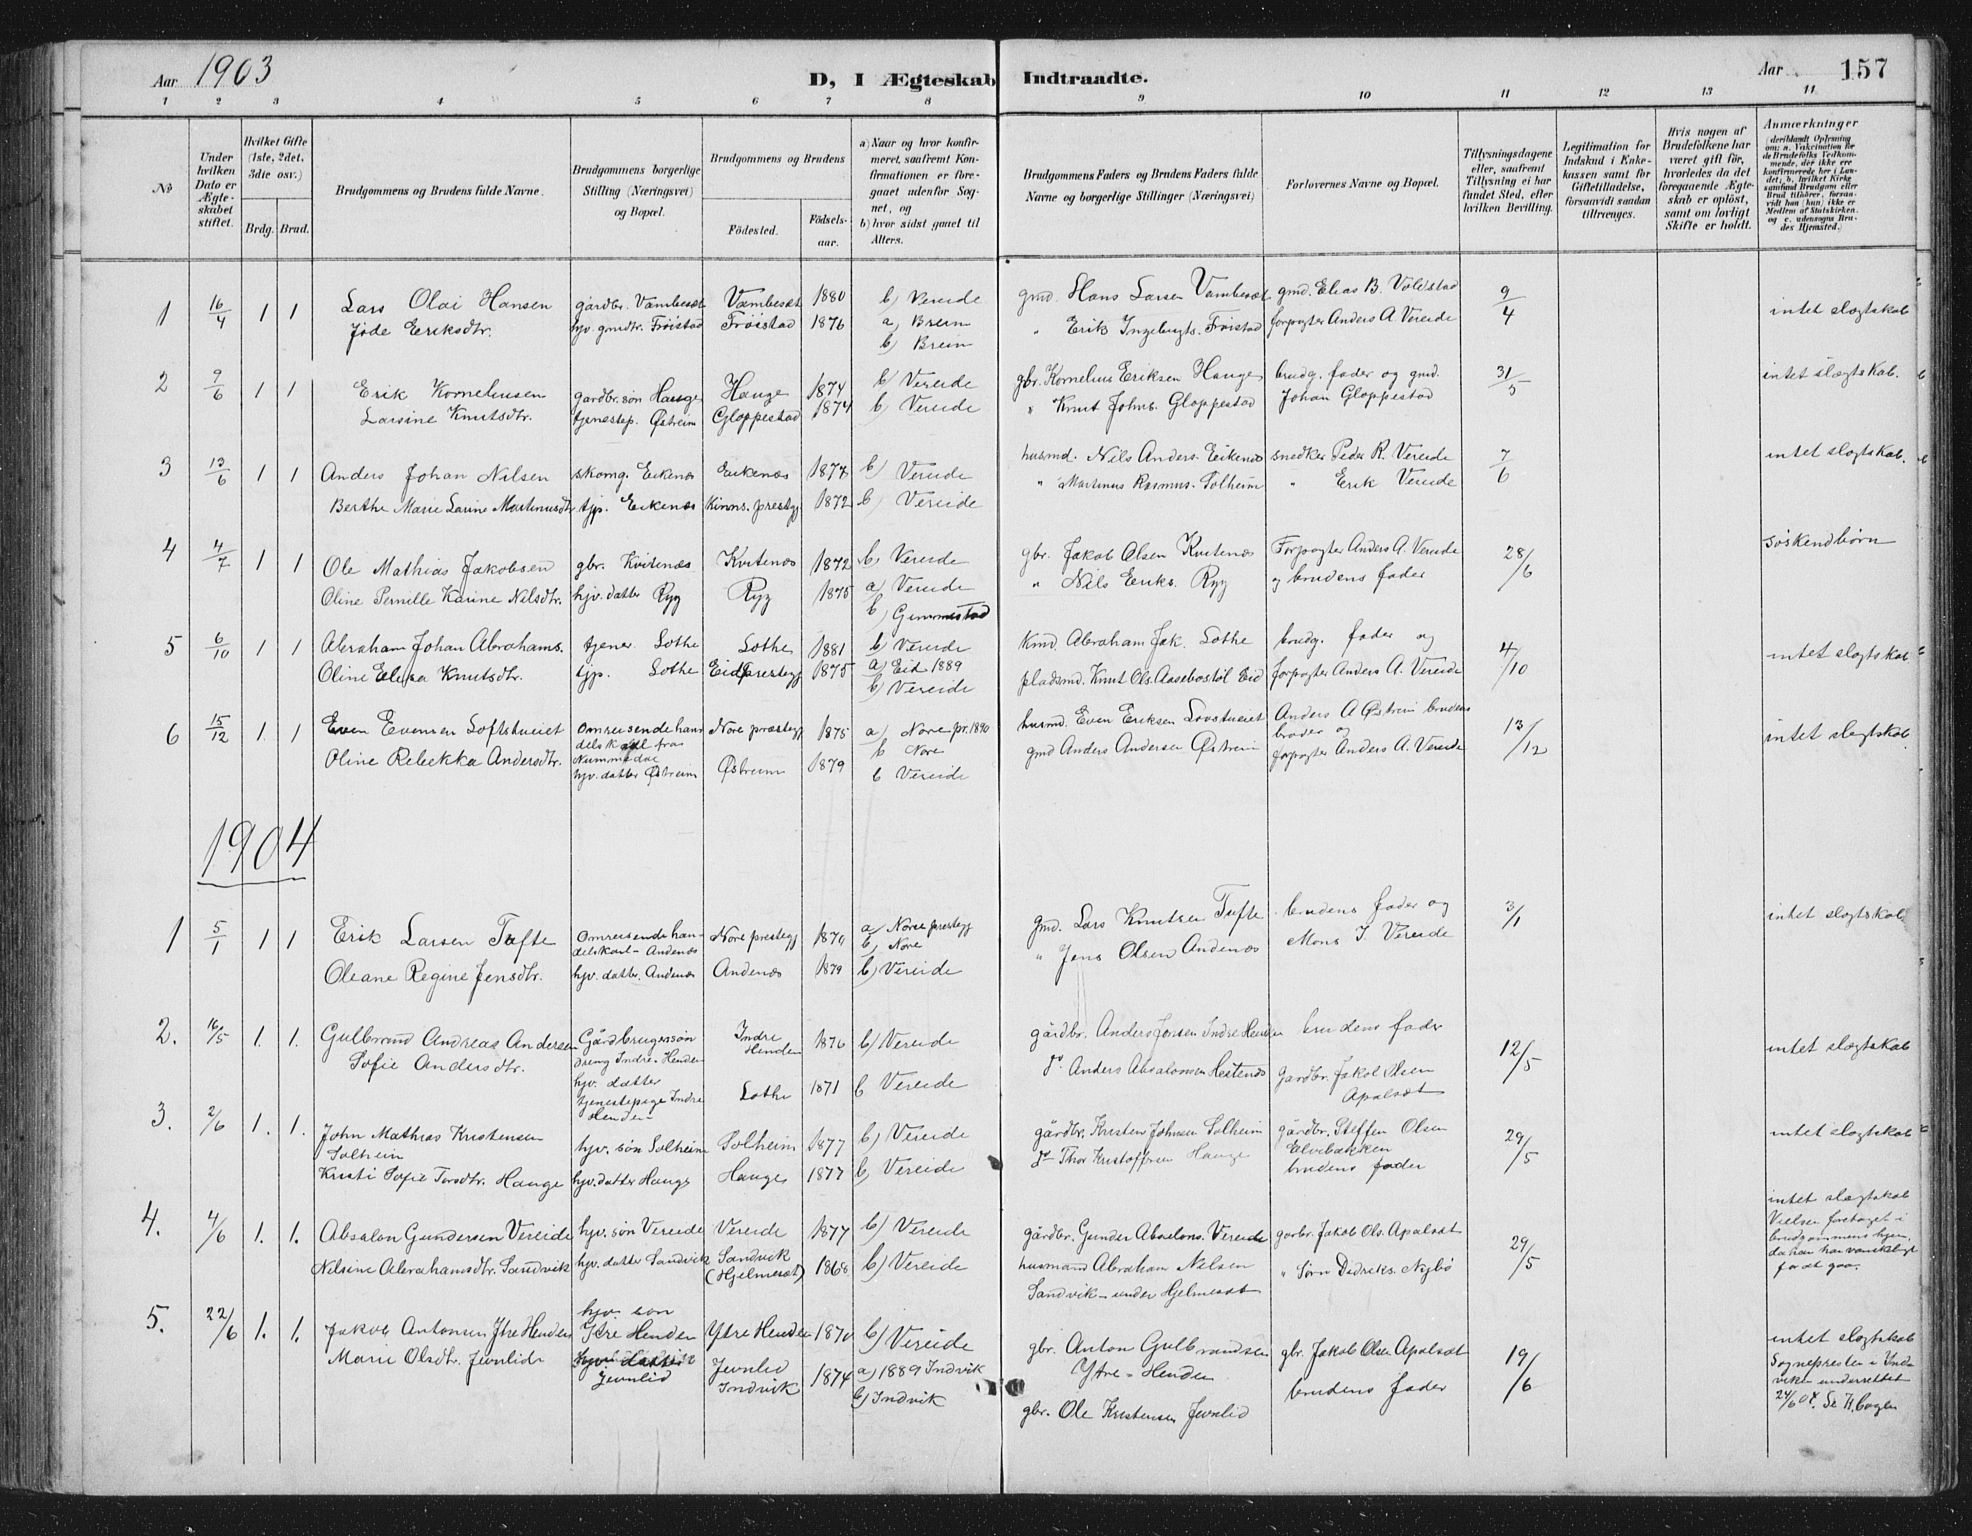 Aar 1903
D, I Ægteskab Indtraadte.
Aar 157
1 2 3 4 5 6 7 8 9 10 11 12 13 11
No
Under hvilken Dato er Ægteskabet stiftet.
Hvilket Gifte (1ste, 2det, 3die osv.)
Brdg. Brud.
Brudgommens og Brudens fulde Navne.
Brudgommens borgerlige Stilling (Næringsvei) og Bopæl.
Brudgommens og Brudens
Fødested.
Fødselsaar.
a) Naar og hvor konfirmeret, saafremt Konfirmationen er foregaaet udenfor Sognet, og
b) hvor sidst gaaet til Alters.
Brudgommens Faders og Brudens Faders fulde Navne og borgerlige Stillinger (Næringsvei)
Forlovernes Navne og Bopæl.
Tillysningsdagene eller, saafremt Tillysning ei har fundet Sted, efter hvilken Bevilling.
Legitimation for Indskud i Enkekassen samt for Giftetilladelse, forsaavidt saadan tiltrænges.
Hvis nogen af Brudefolkene har været gift før, hvorledes da det foregaaende Ægteskab er opløst, samt om lovligt Skifte er holdt.
Anmærkninger (deriblandt Oplysning om: a. Vakcination for de Brudefolks Vedkommende, der ikke ere konfirmerede her i Landet; b. hvilket Kirkesamfund Brudgom eller Brud tilhører, forsaavidt han (hun) ikke er Medlem af Statskirken, og c. udensogns Brudes Hjemsted.)
1 16/4 1 1 Lars Olai Hansen gårdbr. Vambesæt Vambesæt 1880 b) Vereide gmd. Hans Larsen Vambesæt gmd. Elias B. Voldstad 9/4 intet slægtskab
Jøde Eriksdtr. hjv. gmdtr. Frøistad Frøistad 1876 a) Breim " Erik Ingebrigts. Frøistad forpagter Anders A. Vereide
b) Breim
2 9/6 1 1 Erik Korneliusen gårdbr. søn Hauge Hauge 1874 b) Vereide gbr. Kornelius Eriksen Hauge brudg. fader og gmd. 31/5 intet slægtskab.
Larsine Knutsdtr. tjenestep. Østreim Gloppestad 1874 b) Vereide " Knut Johns. Gloppestad Johan Gloppestad
3 13/6 1 1 Anders Johan Nilsen skomg. Eikenæs Eikenæs 1877 b) Vereide husmd. Nils Anders. Eikenæs snedker Peder R. Vereide 7/6 intet slægtskab.
Berthe Marie Larine Martinusdtr tjp. Eikenæs Kinns. prestgj 1872 b) Vereide " Martinus Rasmus. Solheim " Erik Vereide
4 4/7 1 1 Ole Mathias Jakobsen gbr. Kvitenæs Kvitenæs 1872 b) Vereide gbr. Jakob Olsen Kvitenæs Forpagter Anders A. Vereide 28/6 søskendbørn
Oline Pernille Karine Nilsdtr. hjv. datter Ryg Ryg 1875 a) Vereide " Nils Eriks. Ryg og brudens fader
b) Gimmestad
5 6/10 1 1 Abraham Johan Abrahams. tjener Lothe Lothe 1881 b) Vereide Kmd. Abraham Jak. Lothe brudg. fader og 4/10 intet slægtskab
Oline Elisa Knutsdtr. tjp. Lothe Eids prestegj 1875 a) Eid 1889 pladsmd. Knut Ols. Aasebøstøl Eid forpagter Anders A. Vereide
b) Vereide
6 15/12 1 1 Even Evensen Loftshueiet Omreisende handelskarl fra Nummedal Nore præstegj 1875 a) Nore pr. 1890 husmd. Even Eriksen Lovstueiet Anders A Østreim brudens broder og 13/12 intet slægtskab.
b Nore
Oline Rebekka Andersdtr. hjv. datter Østreim Østreim 1879 b Vereide gmd Anders Andersen Østreim forpagter Anders A. Vereide
1904
1 5/1 1 1 Erik Larsen Tufte Omreisende handelskarl - Andenæs Nore prestegj 1870 a) Nore prestegj gmd. Lars Knutsen Tufte brudens fader og 3/1 intet slægtskab
b) Nore
Oleane Regine Jensdtr. hjv. datter. Andenæs Andenæs 1879 b) Vereide " Jens Olsen Andenæs Mons I. Vereide
2. 16/5 1. 1. Gulbrand Andreas Andersen Gårdbrugersøn dreng Indre-Henden Indre Henden 1876 b) Vereide gårdbr. Anders Jonsen Indre Henden brudens fader 12/5 intet slægtskab
Sofie Andersdtr. hjv. datter tjenestepige Indre Henden - Lothe 1871 b Vereide do Anders Absalonsen Hestenæs Gårdbr. Jakob Olsen Apalsæt
3. 2/6 1. 1. John Mathias Kristensen Solheim hjv. søn Solheim Solheim 1877 b) Vereide gårdbr. Kristen Johnsen Solheim gårdbr. Steffen Olsen Elvebakken 29/5 intet slægtskab
Kristi Sofie Torsdtr. Hauge hjv. datter Hauge Hauge 1877 b) Vereide do Thor Kristoffersen Hauge brudens fader
4. 4/6 1. 1. Absalon Gundersen Vereide hjv. søn Vereide Vereide 1877 b) Vereide gårdbr. Gunder Absalons. Vereide garbr. Jakob Ols. Apalsæt 29/5 intet slægtskab
Vielsen foretaget i brudgommens hjem, da han har vanskeligt for at gaa.
Nilsine Abrahamsdtr. Sandvik hjv. datter Sandvik Sandvik (Hjelmesæt) 1868 b) Vereide husmand Abraham Nilsen Sandvik - under Hjelmesæt " Sørn Didreks. Nybø
5. 22/6 1. 1. Jakob Antonsen Ytre Henden hjv. søn Ytre Henden Ytre Henden 1870 b) Vereide gbr. Anton Gulbrandsen Ytre - Henden gbr. Jakob Olsen Apalsæt 19/6 intet slægtskab
Marie Olsdtr. Jevnlid hjv. datter Jevnlid Jevnlid Indvik 1874 a) 1889 Indvik gbr. Ole Kristensen Jevnlid brudens fader
b) Indvik
Sognepresten i Indvik underrettet 24/6 04.